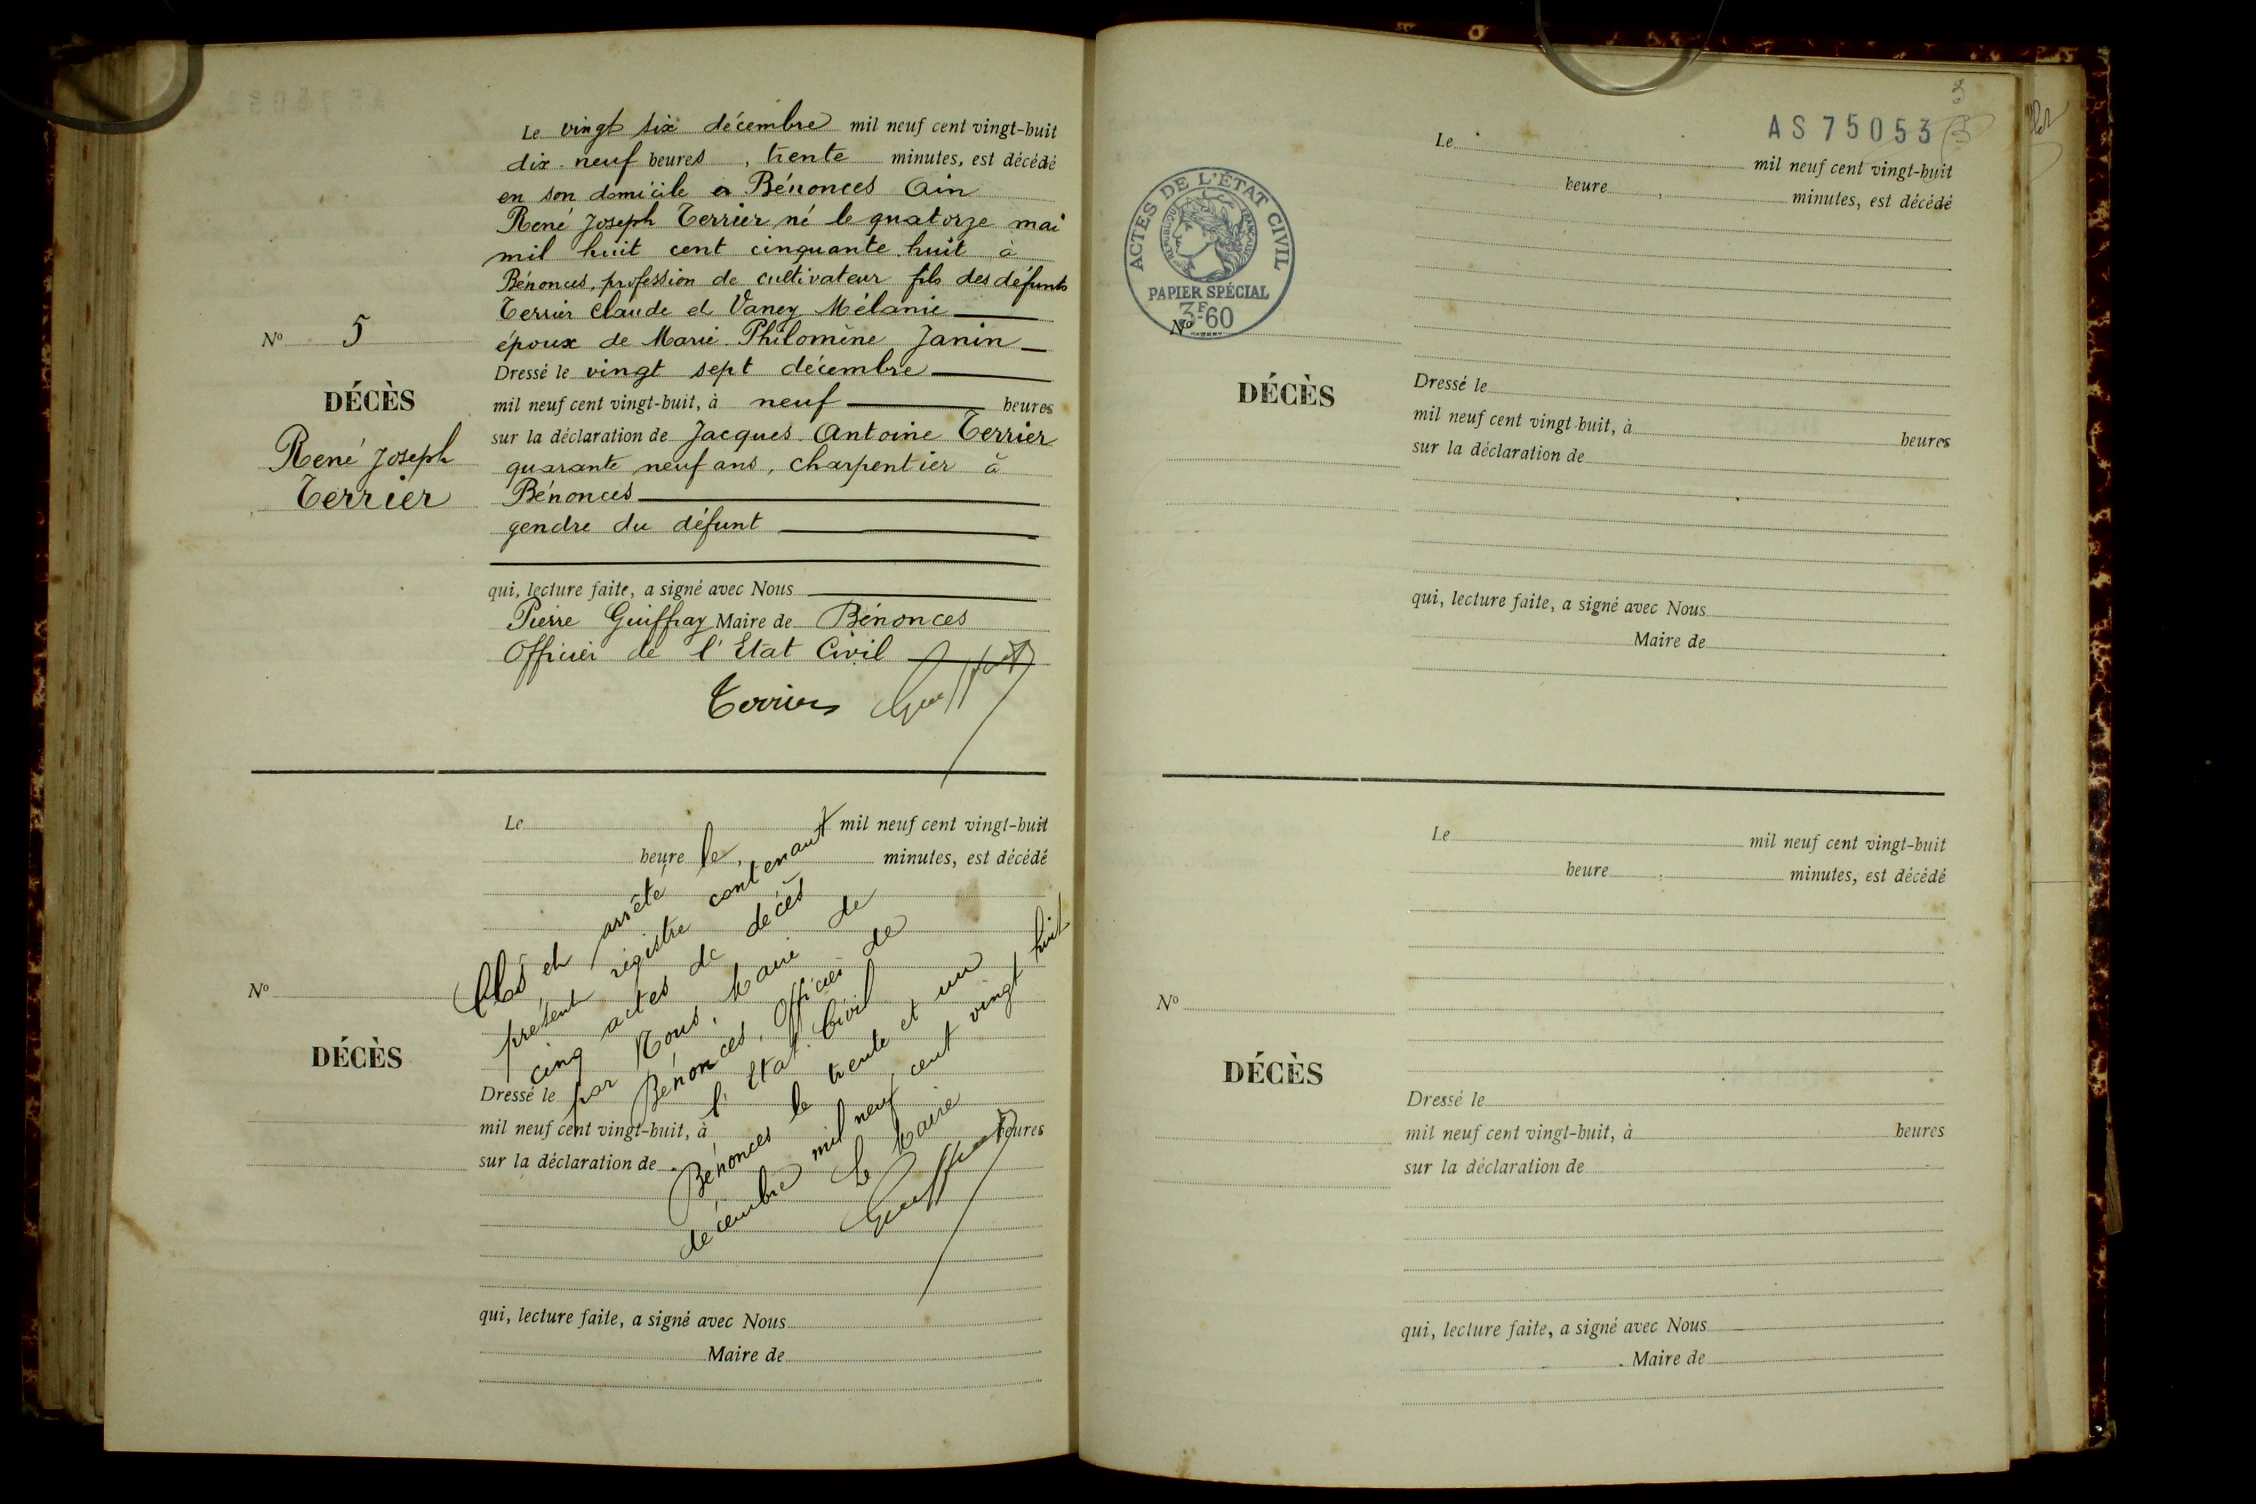 Le vingt six décembre mil neuf cent vingt-huit
dix neuf heures, trente minutes, est décédé
en son domicile à Bénonces Ain
René Joseph Terrier né le quatorze mai
mil huit cent cinquante huit à
Bénonces, profession de cultivateur fils des défunts
Terrier Claude et Vaney Mélanie
époux de Marie Philomène Janin
Dressé le vingt sept décembre
mil neuf cent vingt-huit, à neuf heures
sur la déclaration de Jacques Antoine Terrier
quarante neuf ans, charpentier à
Bénonces
gendre du défunt
qui, lecture faite, a signé avec Nous
Pierre Guiffray Maire de Bénonces
Officier de l'Etat Civil
Terrier
Nº 5
DÉCÈS
René Joseph
Terrier
Le mil neuf cent vingt-huit
heure, minutes, est décédé
Nº
DÉCÈS
Dressé le
mil neuf cent vingt-huit, à heures
sur la déclaration de
qui, lecture faite, a signé avec Nous
Maire de
Clos et arrêté le
présent registre contenant
cinq actes de décès
par Nous, Maire de
Bénonces, Officier de
l'Etat Civil
Bénonces le trente et un
décembre mil neuf cent vingt huit
Le Maire
3
AS 75053
ACTES DE L'ÉTAT CIVIL
RÉPUBLIQUE FRANÇAISE
PAPIER SPÉCIAL
3F60
Le mil neuf cent vingt-huit
heure, minutes, est décédé
Nº
DÉCÈS
Dressé le
mil neuf cent vingt-huit, à heures
sur la déclaration de
qui, lecture faite, a signé avec Nous
Maire de
Le mil neuf cent vingt-huit
heure, minutes, est décédé
Nº
DÉCÈS
Dressé le
mil neuf cent vingt-huit, à heures
sur la déclaration de
qui, lecture faite, a signé avec Nous
Maire de